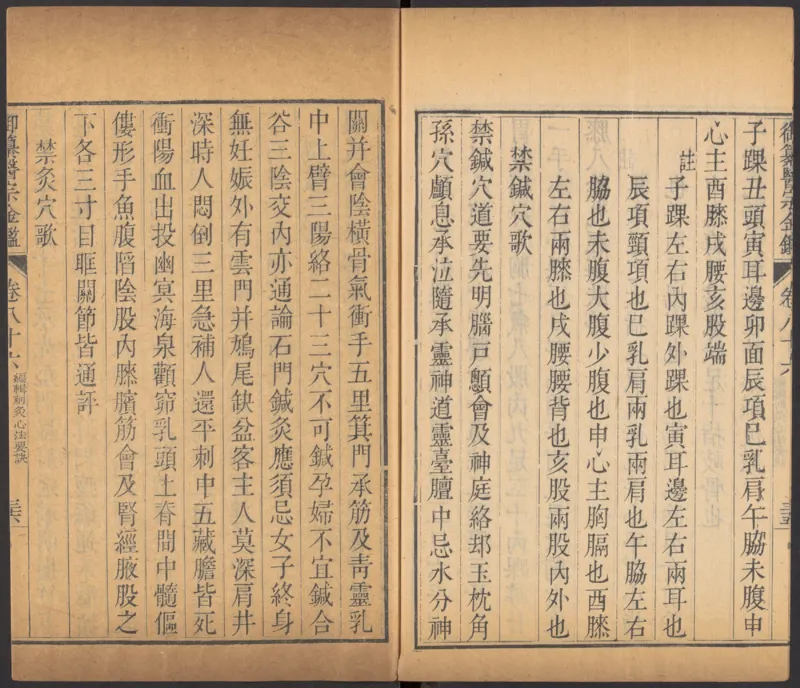 御纂醫宗金鑑 卷八十六 三五
子踝丑頭寅耳邊卯面辰項巳乳肩午脇未腹申
心主酉膝戌腰亥股端
註
子踝左右內踝外踝也寅耳邊左右兩耳也
辰項頸項也巳乳肩兩乳兩肩也午脇左右
脇也未腹大腹少腹也申心主胸膈也酉膝
左右兩膝也戌腰腰背也亥股兩股內外也
禁鍼穴歌
禁鍼穴道要先明腦戶顖會及神庭絡却玉枕角
孫穴顱息承泣隨承靈神道靈臺膻中忌水分神
關并會陰橫骨氣衝手五里箕門承筋及靑靈乳
中上臂三陽絡二十三穴不可鍼孕婦不宜鍼合
谷三陰交內亦通論石門鍼灸應須忌女子終身
無妊娠外有雲門并鳩尾缺盆客主人莫深肩井
深時人悶倒三里急補人還平刺中五藏膽皆死
衝陽血出投幽冥海泉顴窌乳頭上脊間中髓傴
僂形手魚腹陷陰股內膝臏筋會及腎經腋股之
下各三寸目眶關節皆通評
禁灸穴歌
御纂醫宗金鑑 卷八十六 編輯刺灸心法要訣 三六